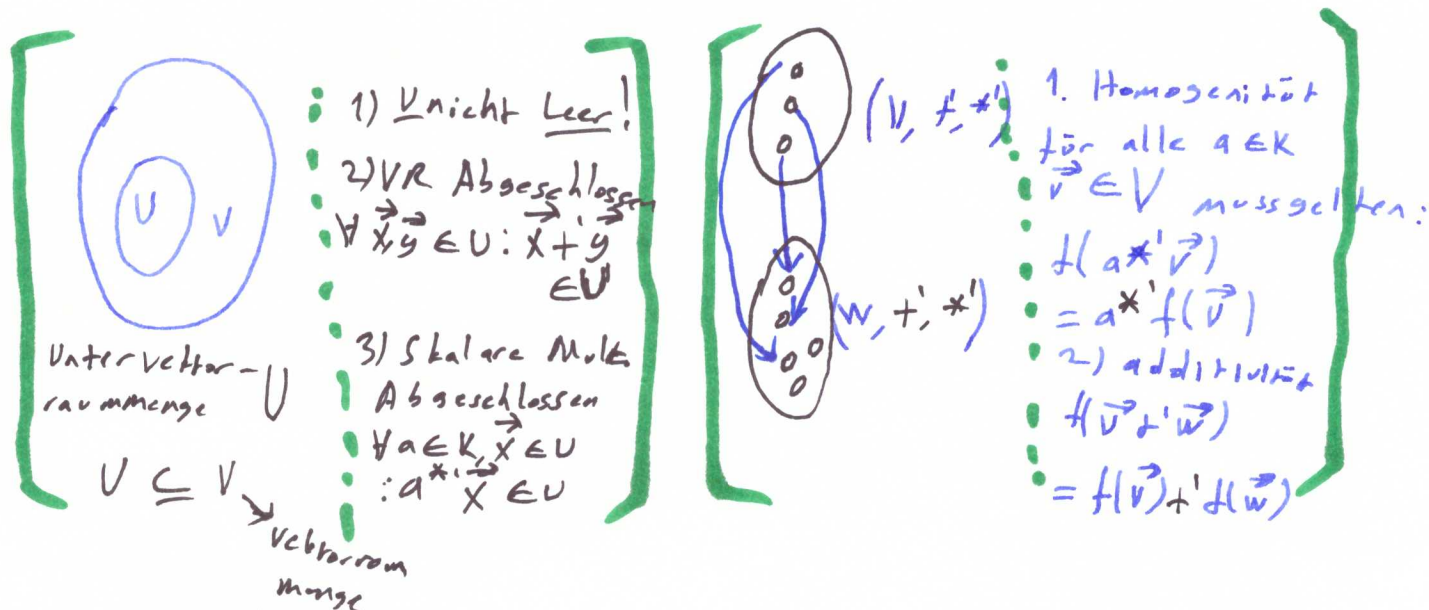 U
V
Untervektor-
raummenge U
U ⊆ V
Vektorraum
menge
1) U nicht Leer!
2) VR Abgeschlossen
∀ x⃗, y⃗ ∈ U : x⃗ +' y⃗
∈ U
3) Skalare Mult
Abgeschlossen
∀ a ∈ K, x⃗ ∈ U
: a *' x⃗ ∈ U
(V, +', *')
(W, +', *')
1. Homogenität
für alle a ∈ K
v⃗ ∈ V muss gelten:
f(a *' v⃗)
= a *' f(v⃗)
2) additivität
f(v⃗ +' w⃗)
= f(v⃗) +' f(w⃗)